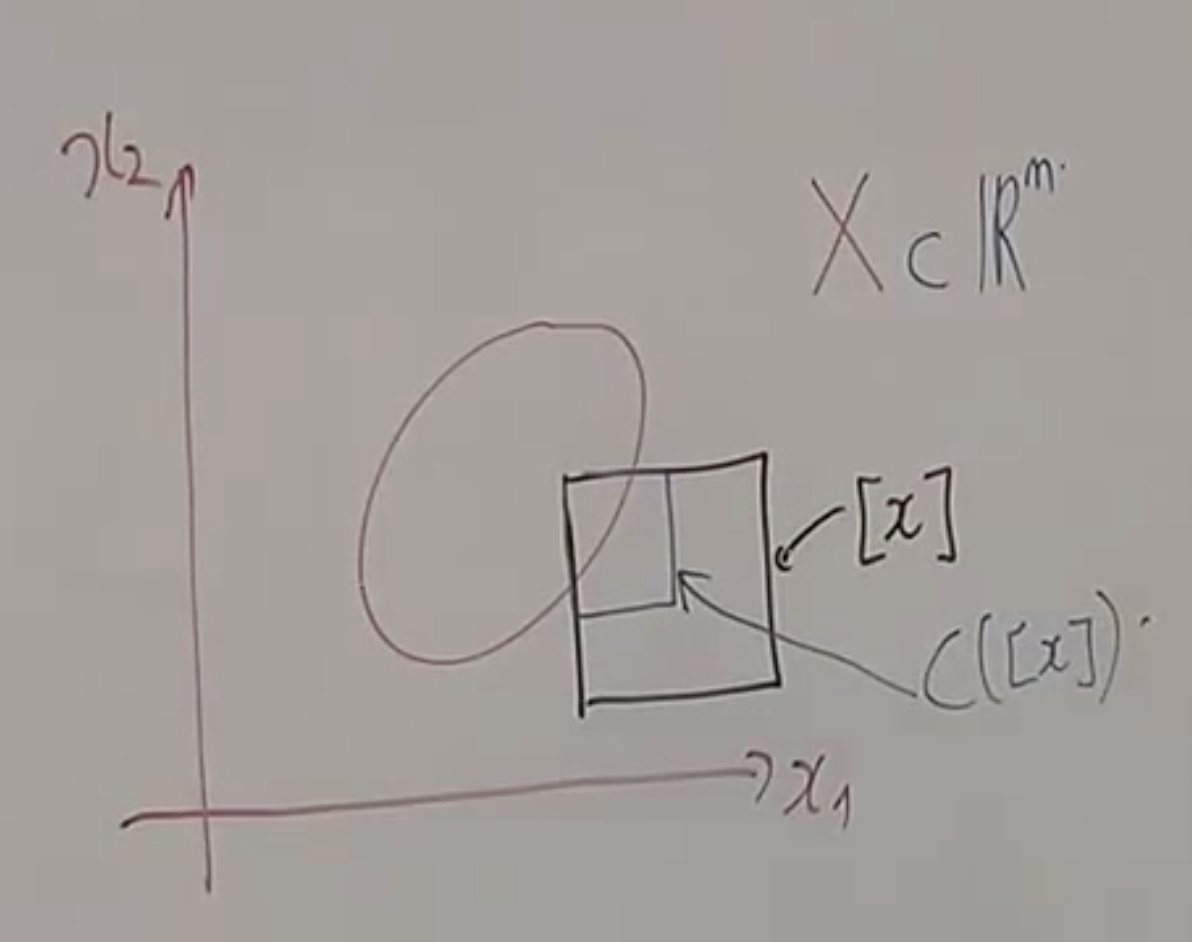 x₂
X ⊂ ℝⁿ
[x]
C([x])
x₁